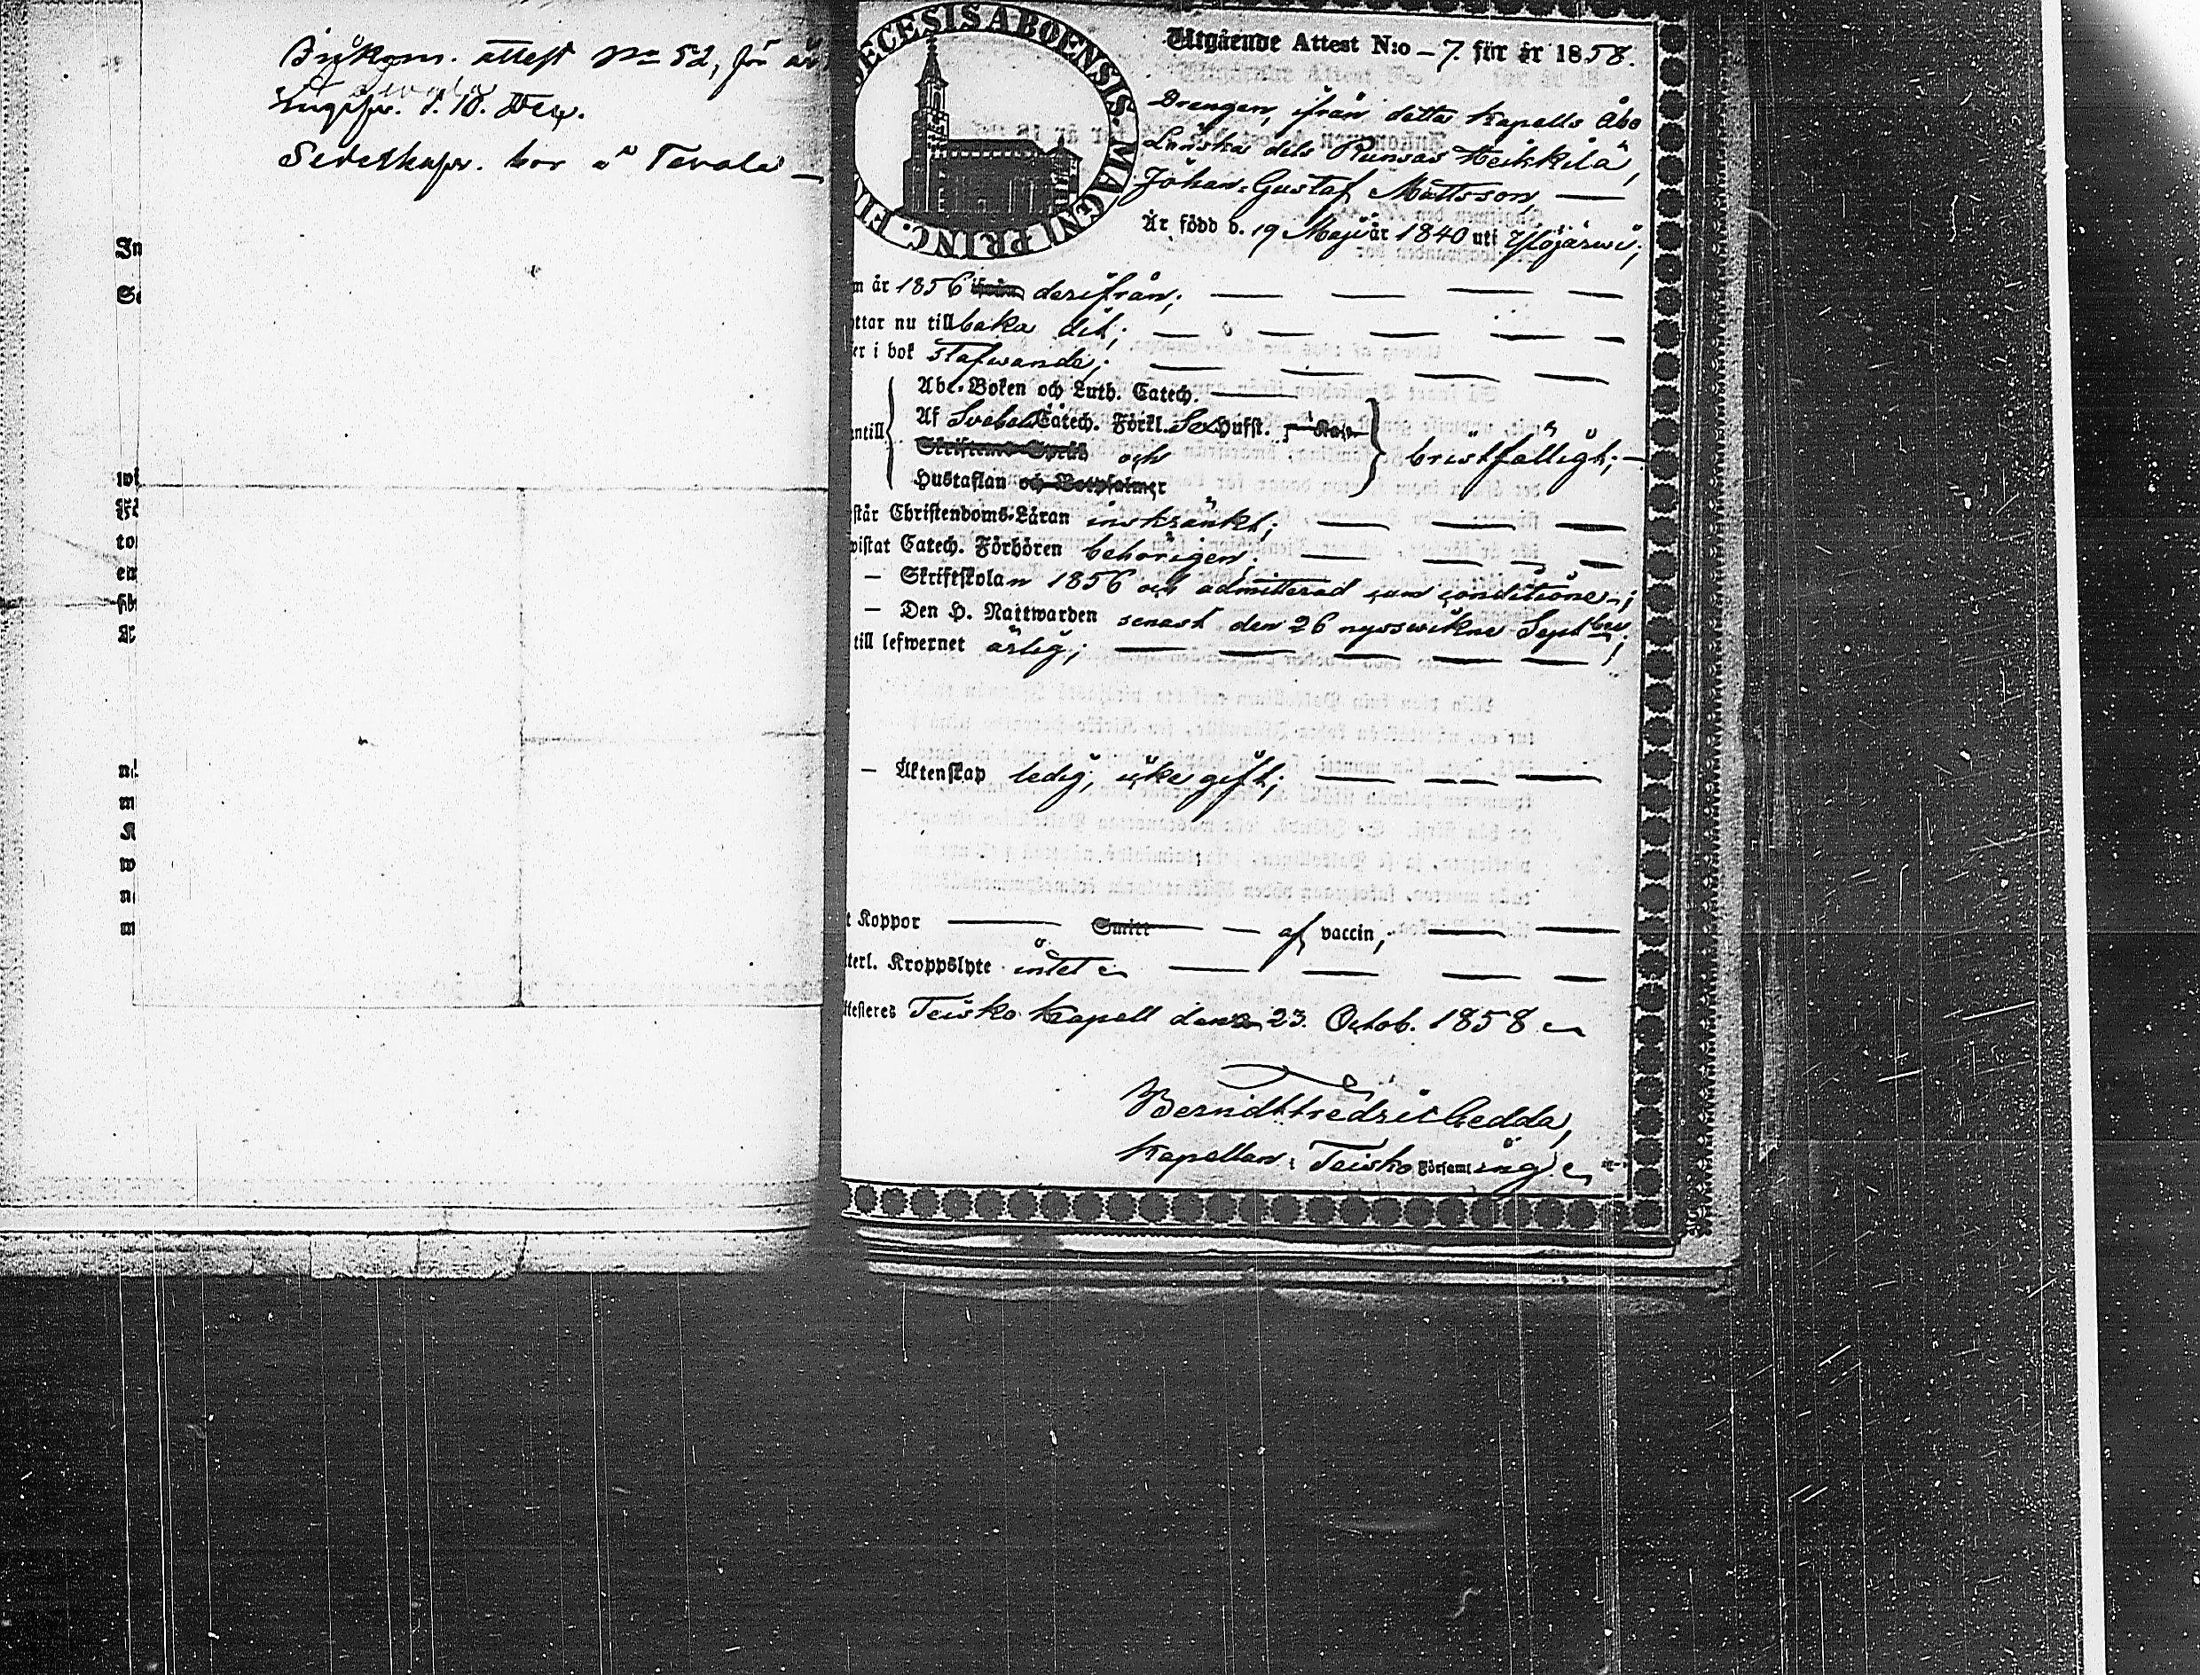 Inkom. attest No 52, för år
Tavala
Sedeskapr. bor å Tavala —
In
Se
wi
Fö
to
en
n
m
K
w
n
m
DIECESIS ABOENSIS. MAGNI PRINC. FIN
Utgående Attest N:o – 7. för år 1858.
Drengen, ifrån detta Kapells Åbo
Länska dels Runsas Heikkilä,
Johan Gustaf Mattsson, —
Är född d. 19 Maji år 1840 uti Ylöjärwi;
m år 1856 ifrån derifrån; — — — —
ttar nu tillbaka dit; — — — — —
er i bok stafwande; — — — — —
Abc-Boken och Luth. Catech. —
Af Svebel. Catech. Förkl. Sex Hufst.
ntill Skriftens Språk och bristfälligt; —
Hustaflan och Botpsalmer
står Christendoms-Läran inskränkt; — — —
vistat Catech. Förhören behörigen; — — — —
— Skriftskolan 1856 och admitterad cum conditione;
— Den H. Nattwarden senast den 26 nysswikne Septbr;
till lefwernet ärlig; — — — — —
— Äktenskap ledig, icke gift; — — —
t Koppor — Smitt — — af vaccin, — —
tterl. Kroppslyte intet — — — —
ttesteres Teisko Kapell den 23. Octob. 1858
Berndt Fredric Gedda,
Kapellan i Teisko Församling.